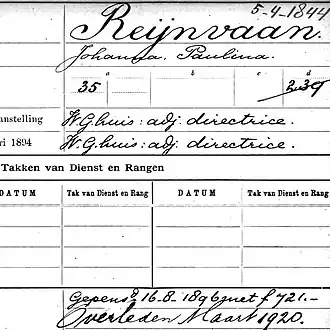 5-4-1844
Reijnvaan.
Johanna, Paulina.
a b c d
35 239
anstelling W.Ghuis: adj. directrice.
ri 1894 W.Ghuis: adj. directrice.
Takken van Dienst en Rangen
DATUM Tak van Dienst en Rang DATUM Tak van Dienst en Rang
Gepensd. 16-8-1896 met f 721.-
Overleden Maart 1920.